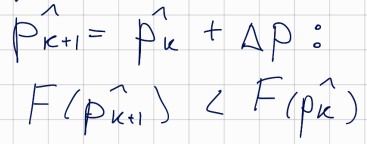 p̂ₖ₊₁ = p̂ₖ + Δp :
F(p̂ₖ₊₁) < F(p̂ₖ)